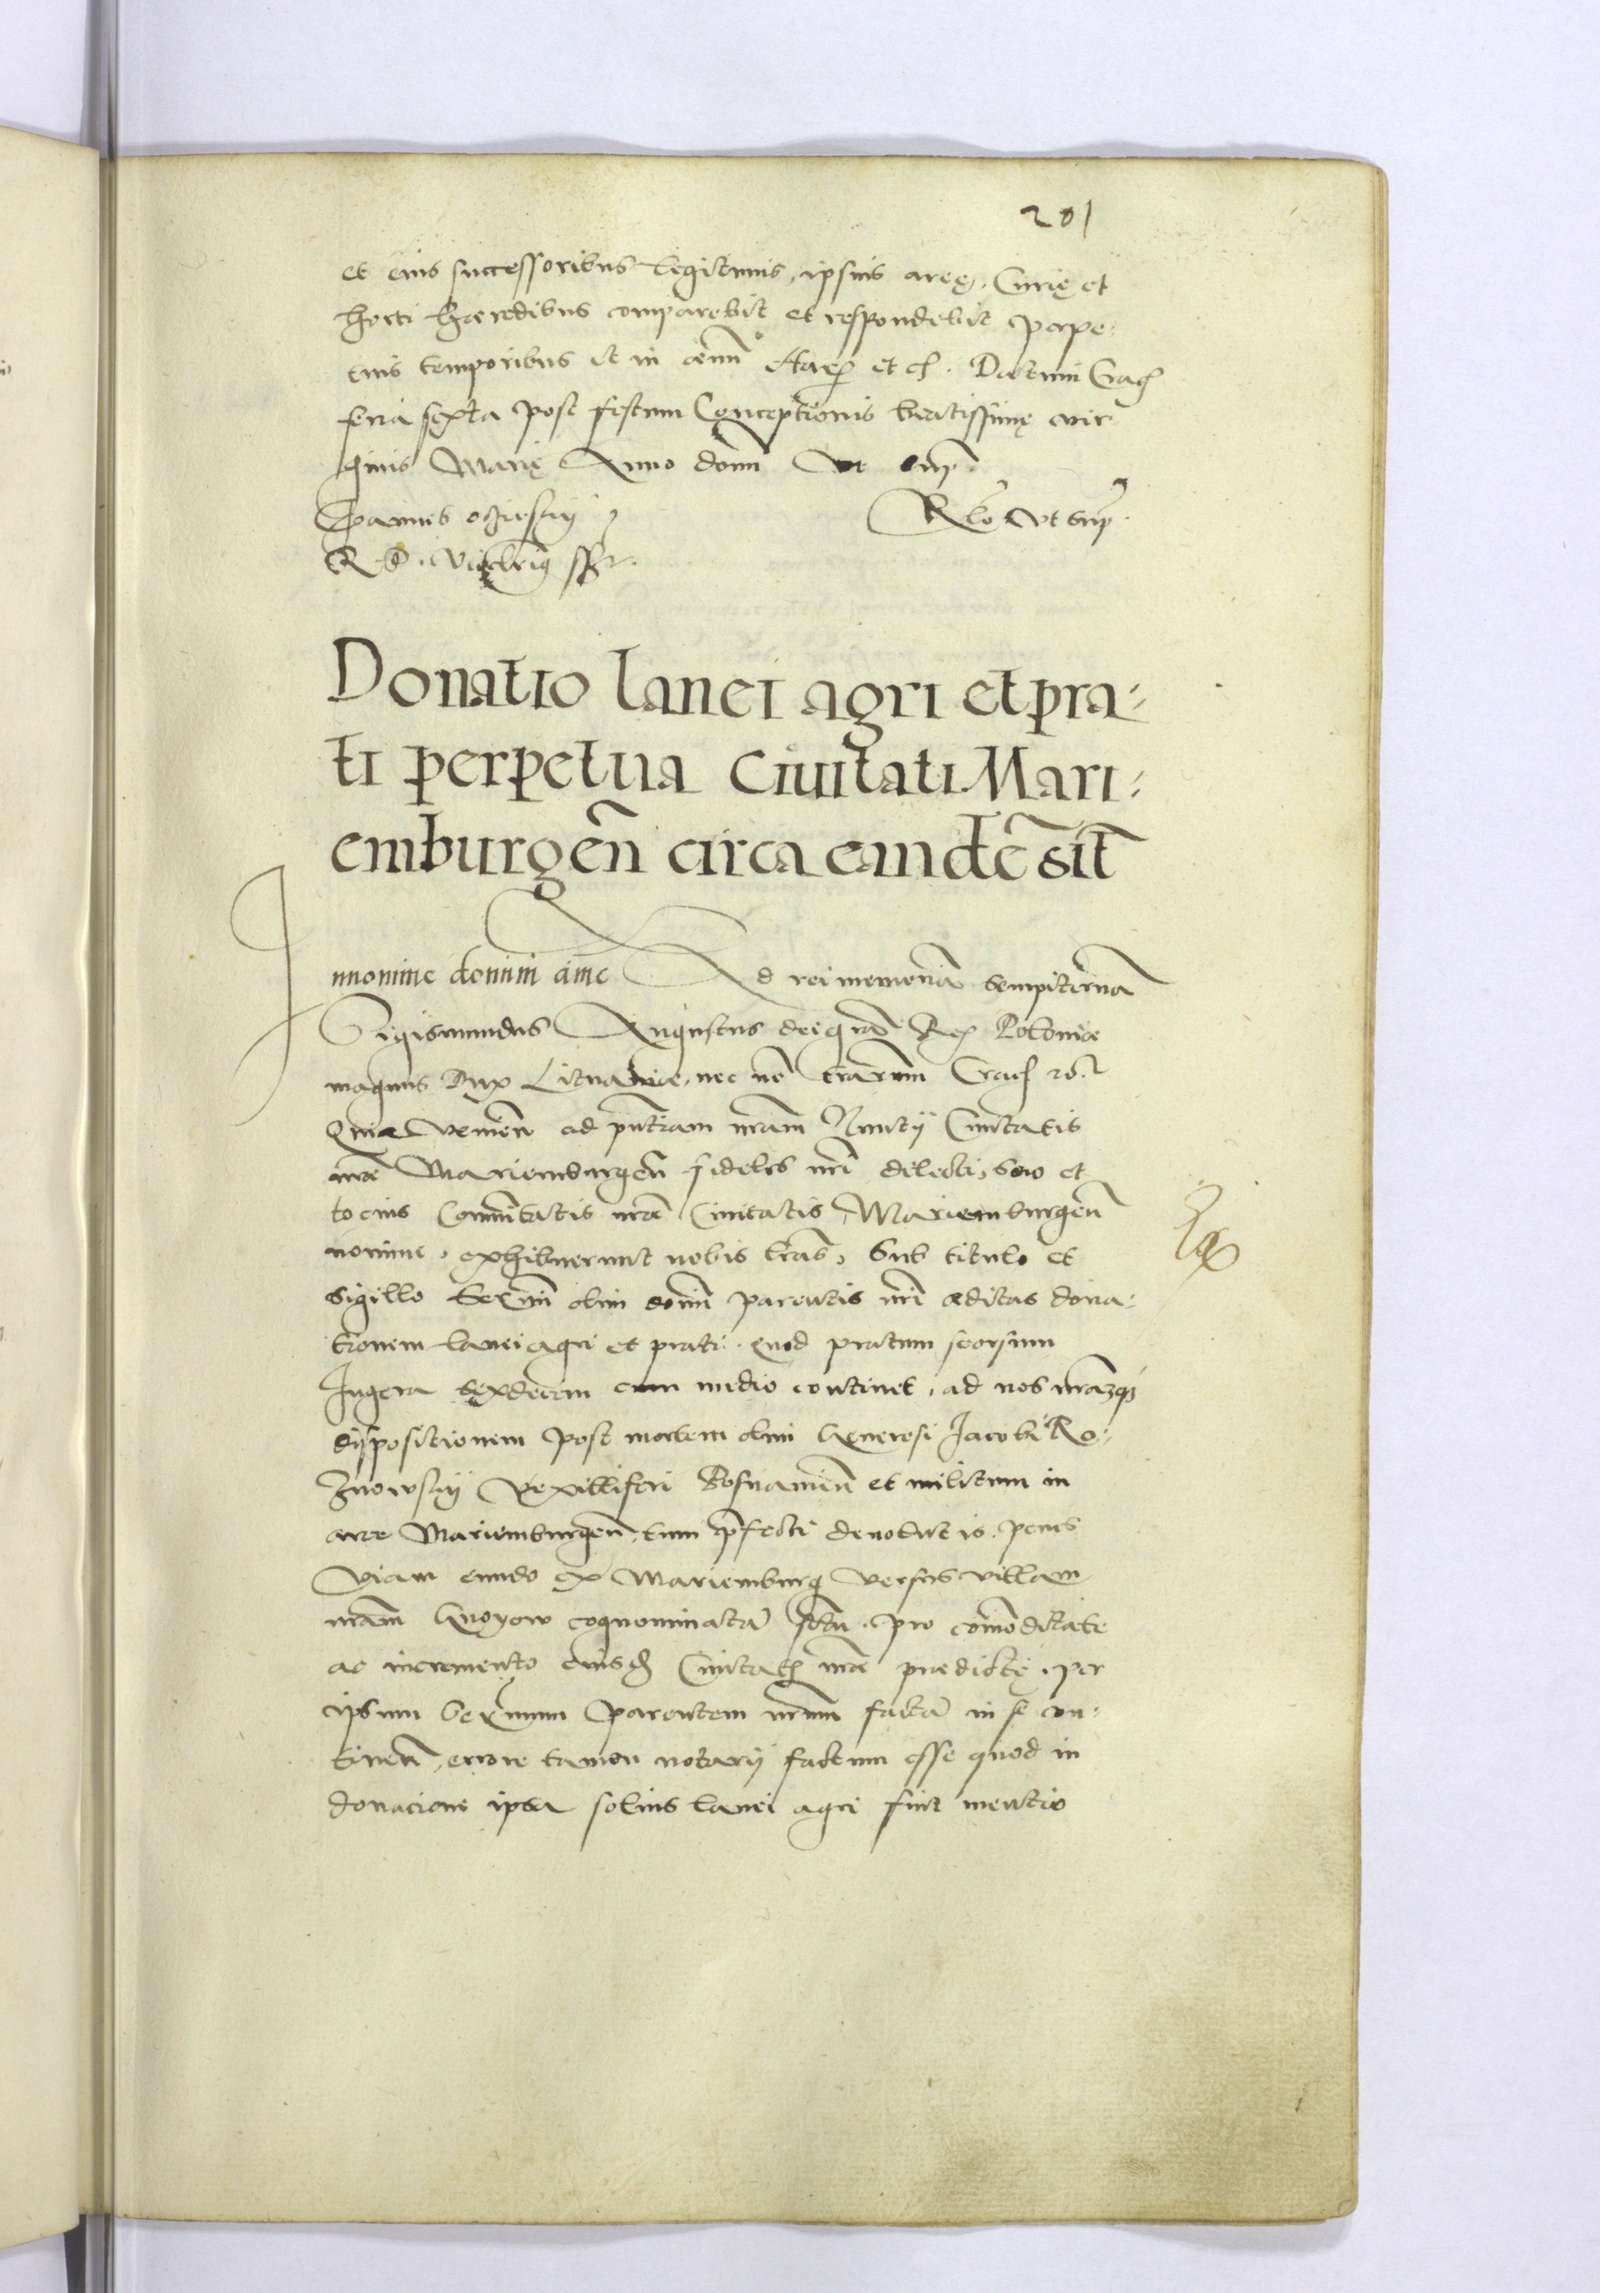 201
et eius successoribus legitimis, ipsius areę, Curię et
horti hæredibus comparebit et respondebit perpe-
tuis temporibus it in cēnū Harū et cf. Datum Crac
feria sexta post festum Conceptionis beatissimę vir
ginis Marię Anno domī Vt sup.
Ioannes oczieskij
Rlō Vt sup.
R. P. Vicecanc sst.
Donatio lanei agri et pra-
ti perpetua Ciuitati Mari-
emburgēn circa eandē sit̄
In nomine domini amē Ad rei memoriā sempiternā
Sigismundus Augustus dei grā Rex Poloniæ
magnus Dux Lituaniæ, nec nō terrarum Crac etc.
Quia venien ad pñtiam nrām Nuntij Ciuitatis
nræ Mariemburgeñ fideles nrī dilecti, suo et
tocius Commūitatis nræ Ciuitatis Mariemburgeñ
nomine, exhibuerunt nobis lrās, sub titulo et
sigillo Serᵐⁱ olim domī parentis nrī æditas dona-
tionem lanei agri et prati, quod pratum seorsum
Iugera sexdecim cum medio continet, ad nos nrāmq3
dispositionem post mortem olim Generosi Jacobi Ro-
znowskij Vexilliferi Posnanieñ et militum in
arce Mariemburgeñ, tum p̄fecti deuolut is. penes
viam eundo ex Mariemburg versus villam
nrām Gnoyow cognominatā sitū, pro cōmoditate
ac incremento eiusd Ciuitatis nræ prædictę, per
ipsum Serᵐum Parentem nrum factā in se con-
tineñ, errore tamen notarij factum esse quod in
donacione ipsa solius lanei agri fint mentio